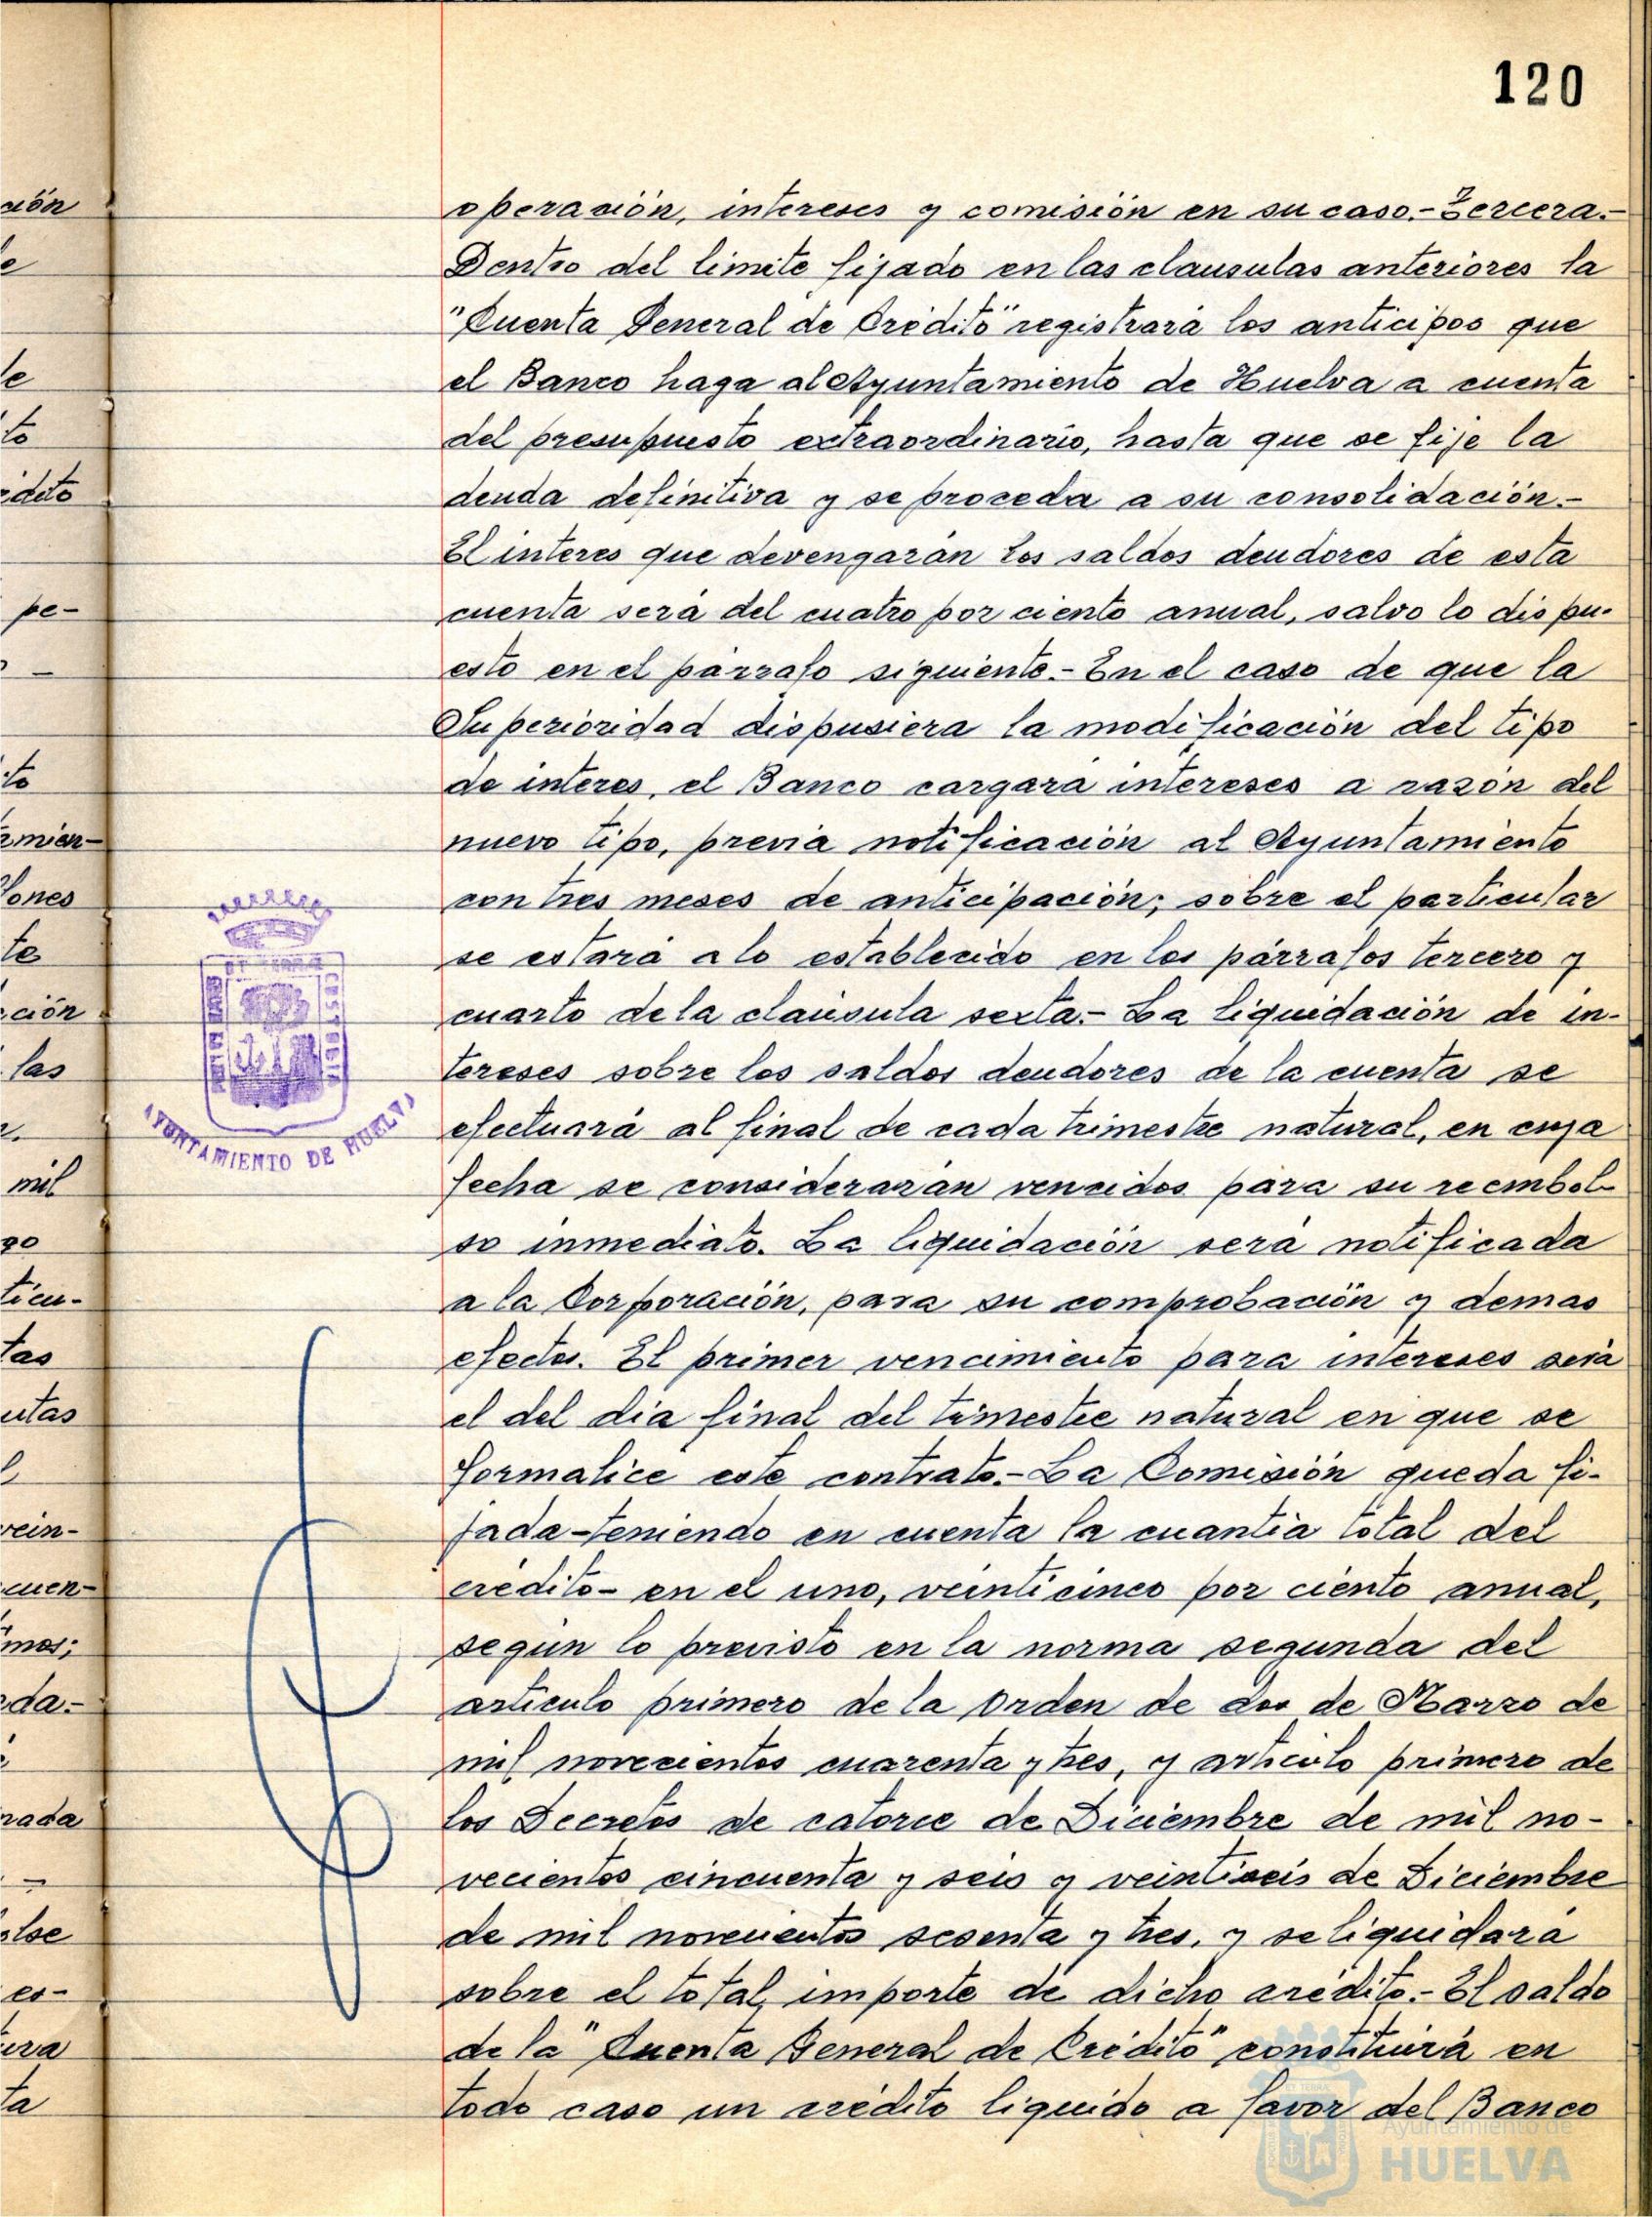 120
operación, intereses y comisión en su caso.- Tercera.-
Dentro del limite fijado en las clausulas anteriores la
"Cuenta General de Crédito" registrará los anticipos que
el Banco haga al Ayuntamiento de Huelva a cuenta
del presupuesto extraordinario, hasta que se fije la
deuda definitiva y se proceda a su consolidación.-
El interes que devengarán los saldos deudores de esta
cuenta será del cuatro por ciento anual, salvo lo dispu-
esto en el párrafo siguiente.- En el caso de que la
Superioridad dispusiera la modificación del tipo
de interes, el Banco cargará intereses a razón del
nuevo tipo, previa notificación al Ayuntamiento
con tres meses de anticipación; sobre el particular
se estará a lo establecido en los párrafos tercero y
cuarto de la clausula sexta.- La liquidación de in-
tereses sobre los saldos deudores de la cuenta se
efectuará al final de cada trimestre natural, en cuya
fecha se considerarán vencidos para su reembol-
so inmediato. La liquidación será notificada
a la Corporación, para su comprobación y demas
efectos. El primer vencimiento para intereses será
el del dia final del trimestre natural en que se
formalice este contrato.- La Comisión queda fi-
jada-teniendo en cuenta la cuantia total del
crédito- en el uno, veinticinco por ciento anual,
según lo previsto en la norma segunda del
articulo primero de la Orden de dos de Marzo de
mil novecientos cuarenta y tres, y articulo primero de
los Decretos de catorce de Diciembre de mil no-
vecientos cincuenta y seis y veintiseis de Diciembre
de mil novecientos sesenta y tres, y se liquidará
sobre el total importe de dicho crédito.- El saldo
de la "Cuenta General de Crédito" constituirá en
todo caso un crédito liquido a favor del Banco
AYUNTAMIENTO DE HUELVA
Ayuntamiento de
HUELVA
ción
e
le
to
édito
pe-
to
amien-
lones
te
ción
las
mil
go
ticu-
tas
utas
l
vein-
cuen-
imos;
da.-
nada
olse
es-
ura
ta